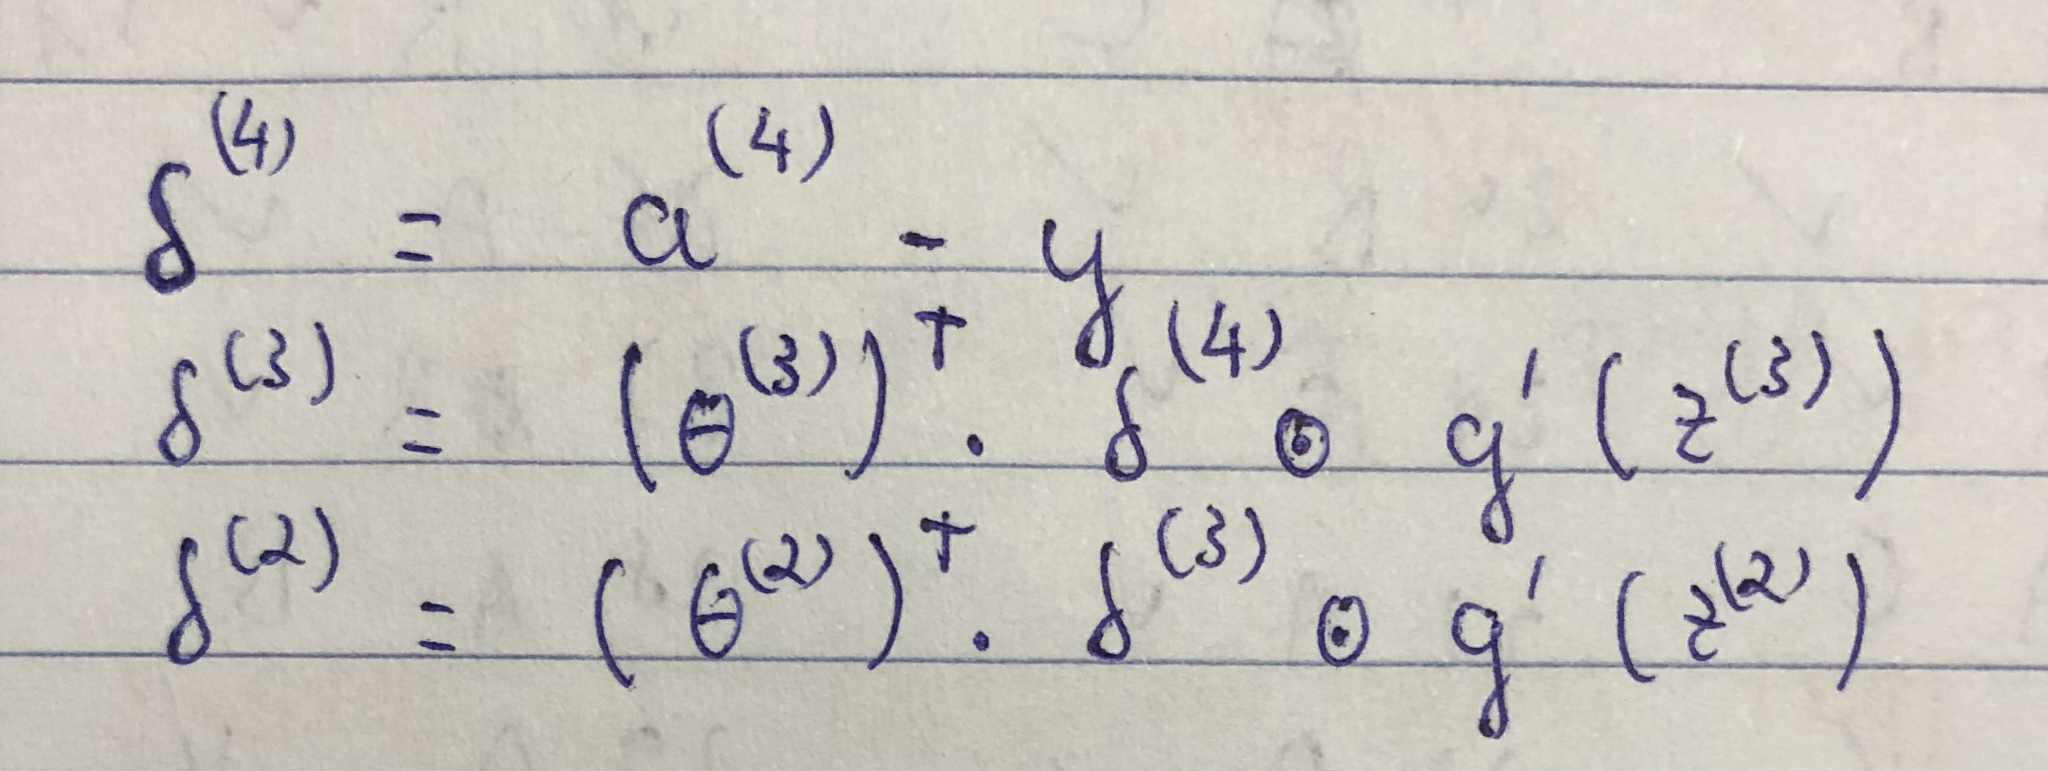 δ^(4) = a^(4) - y
δ^(3) = (θ^(3))^T . δ^(4) ⊙ g' (z^(3))
δ^(2) = (θ^(2))^T . δ^(3) ⊙ g' (z^(2))